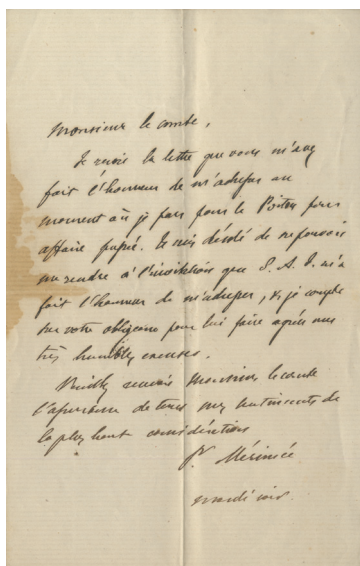 Monsieur le comte,
Je reçois la lettre que vous m'avez
fait l'honneur de m'adresser au
moment où je pars pour le Poitou pour
affaire pressée. Je suis désolé de ne pouvoir
me rendre à l'invitation que S. A. I. m'a
fait l'honneur de m'adresser, & je compte
sur votre obligeance pour lui faire agréer mes
très humbles excuses.
Veuillez recevoir Monsieur le comte
l'expression de tous mes sentiments de
la plus haute considération
Pr Mérimée
mardi soir.